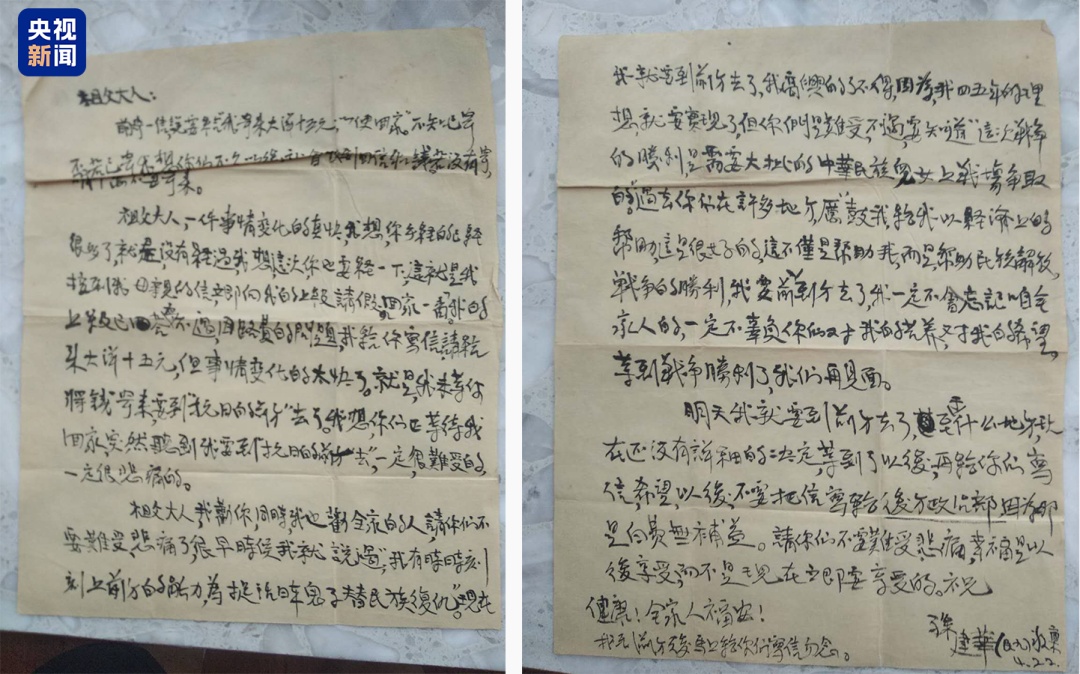 央视
新闻
祖父大人：
前寄一信說 寄來大洋十五元，"使回家"不知已寄
寄來。
祖父大人，一件事情变化的真快，我想，你 經的已經
很 了就是没有經過我想這次你也要經一下，這就是我
接到我母親的信立即向我的上級請假回家一番我的
上級已 不過因路費的問題，我給你寫信請給
來大洋十五元，但事情变化的太快了。就是，我未等你
將钱寄來要到"抗日的前方"去了。我想，你們正等待我
回家，突然聽到我要到"抗日的前方去"，一定很難受的，
一定很悲痛的。
祖父大人，我勸你同時我也勸全家的人，請你們不
要難受悲痛了很早時侯我就說過"我有時時刻
刻上前方的 力，為捉活日本鬼子替民族復仇。"現在
我就要到前方去了，我高興的了不得，因為，我四五年的理
想，就要實現了，但你們是難受不過要知道"這次戰争
的勝利，是需要大批的中華民族兒女上戰場争取
的。過去你們在許多地方 鼓我，給我以經濟上的
幫助，這是很好的，這不僅是幫助我，而是幫助民族解放，
戰争的勝利，我要前到方去了，我一定不會忘記咱全
家人的，一定不辜負你們对于我的培养，对于我的希望。
等到戰争勝利了，我們再見面。
明天我就要到前方去了， 至 什么地方，現
在还没有詳細的决定，等到了以後，再給你們寫
信，希望，以後，不要把信寫給後方政治部因為那
是白費無補益。請你們不要難受悲痛，幸福是以
後享受，而不是現在立即要享受的。祝
健康！全家人福安！
我到前方後馬上給你們寫信勿念。
孫
建華 敬禀
4.22.